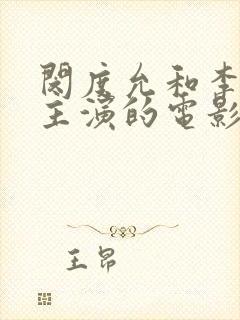 閔度允和李
主演的電影
王昂